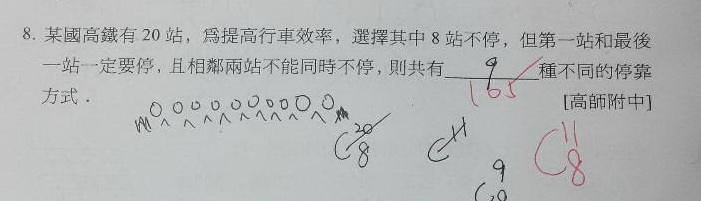 8. 某國高鐵有 20 站，爲提高行車效率，選擇其中 8 站不停，但第一站和最後
一站一定要停，且相鄰兩站不能同時不停，則共有 9 165 種不同的停靠
方式． [高師附中]
C 20 8
C 11
C 11 8
9